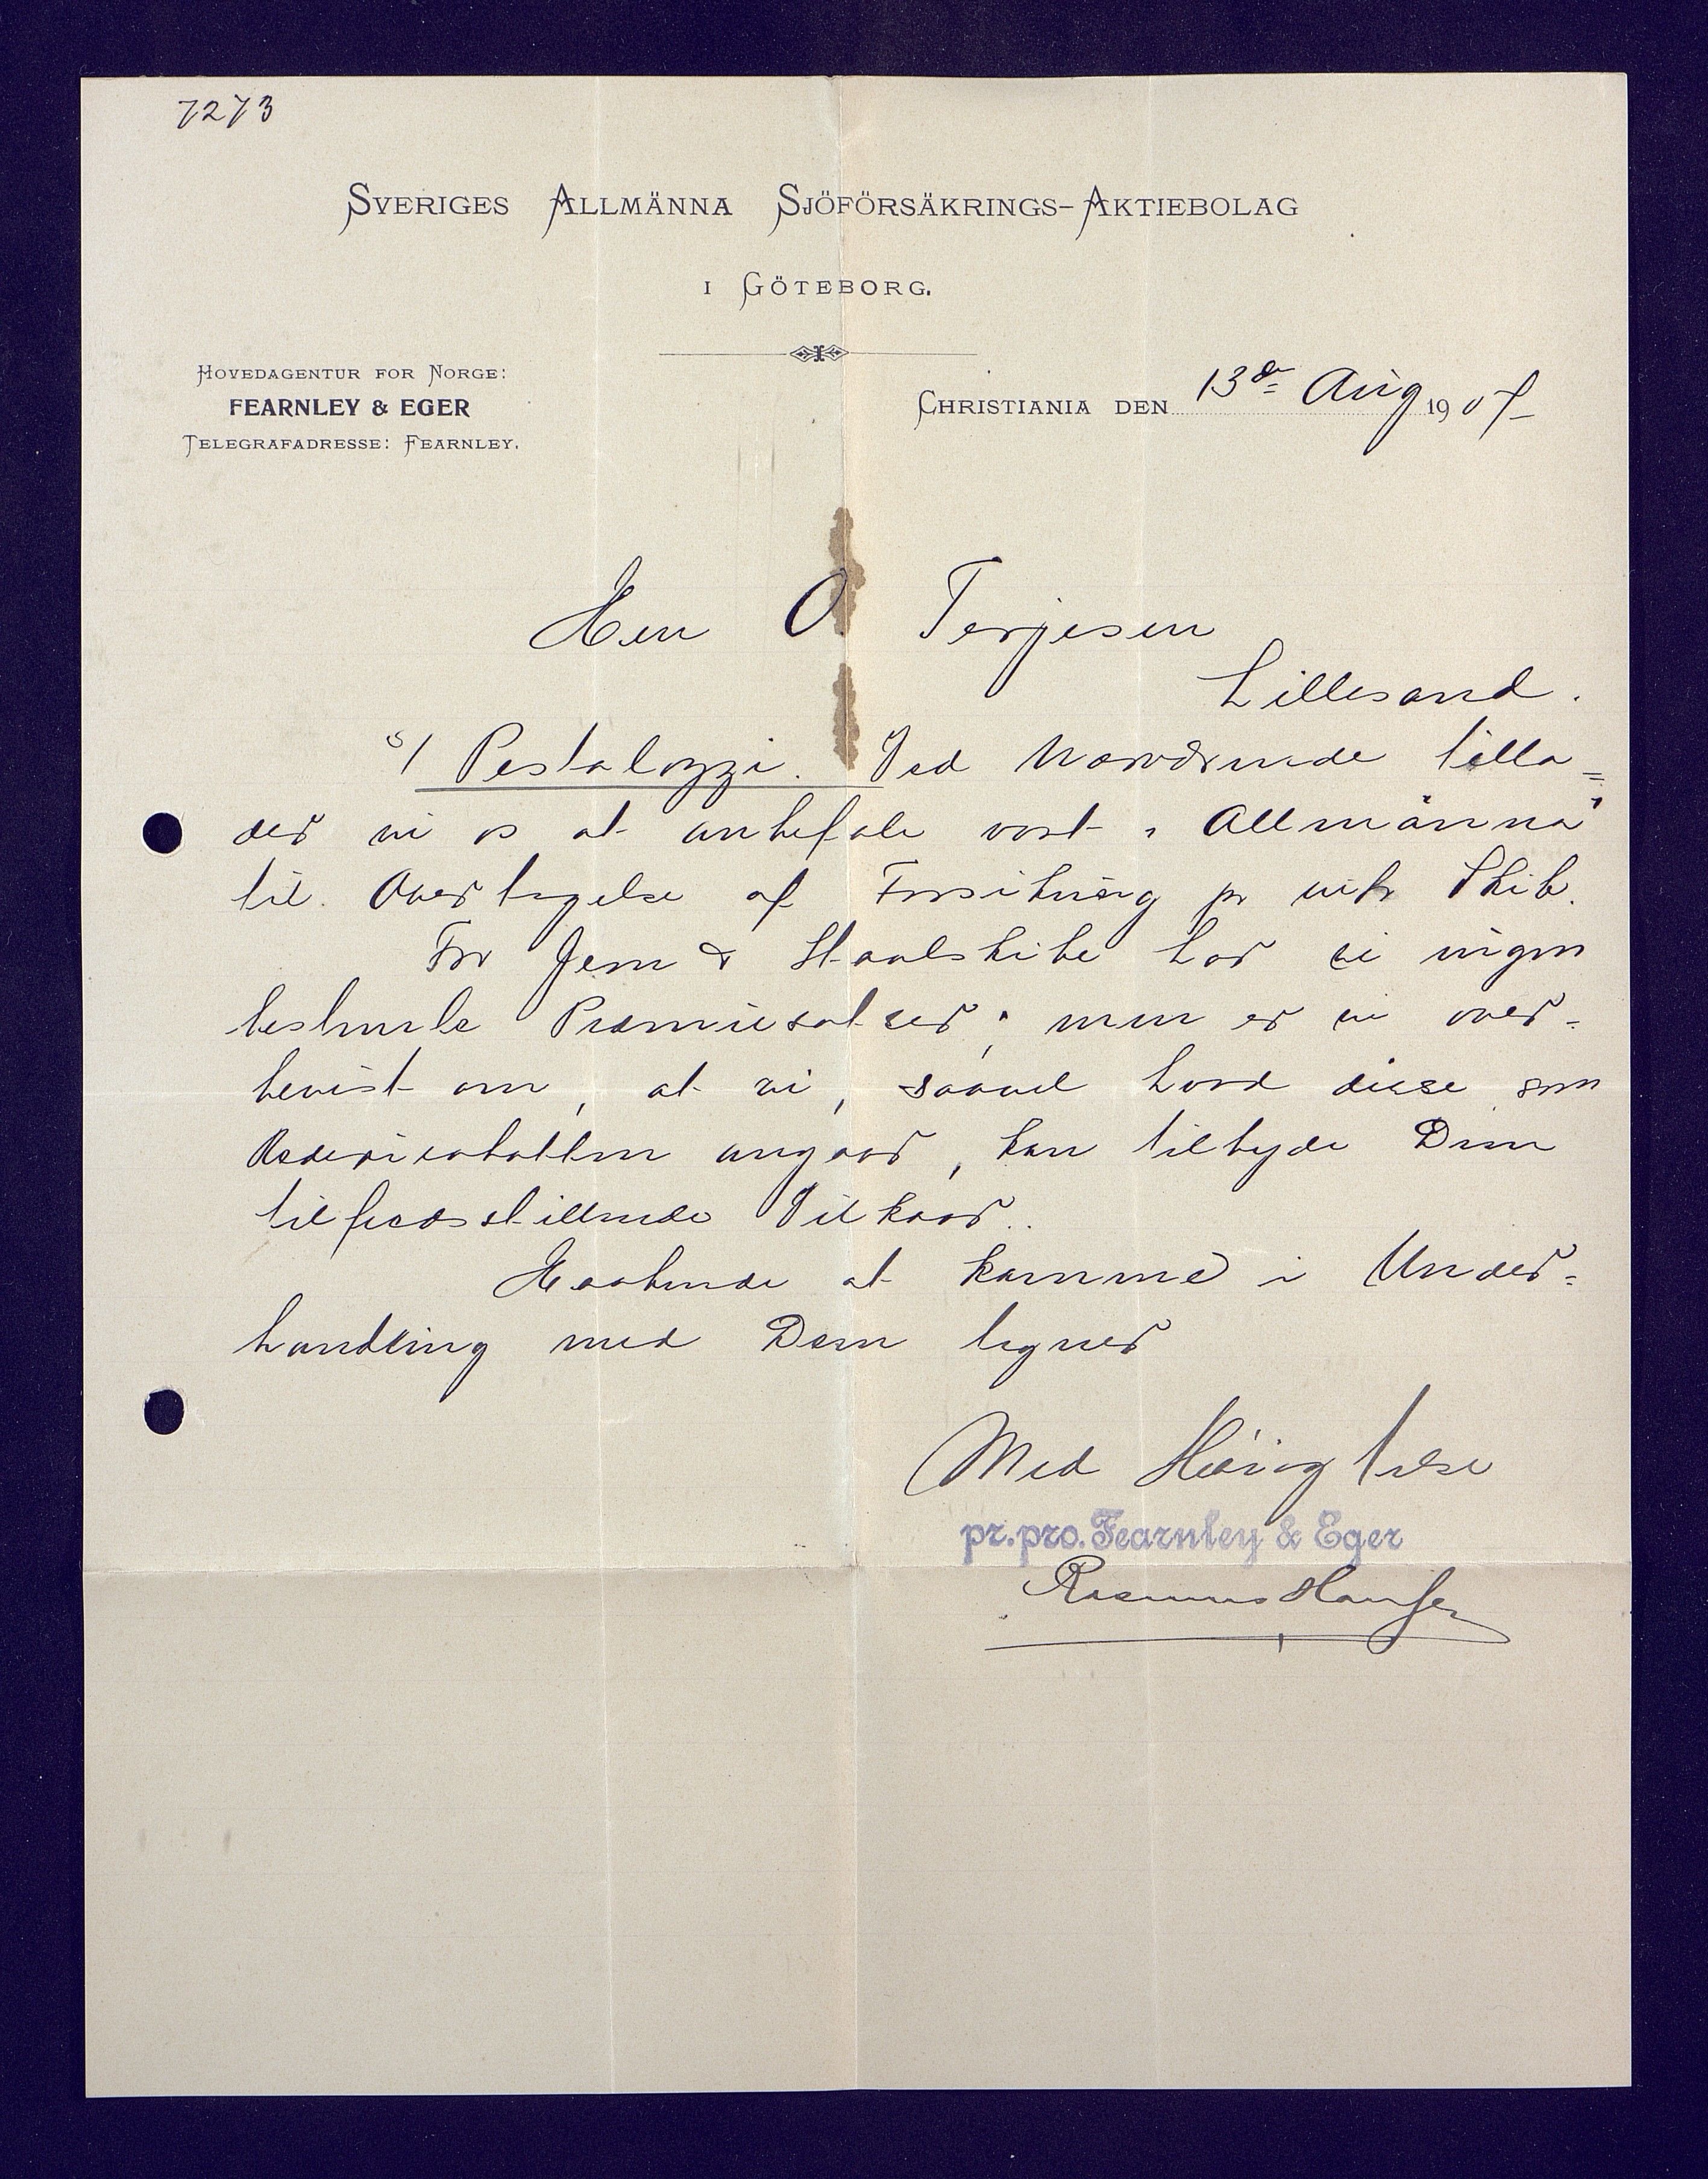 7273
SVERIGES ALLMÄNNA SJÖFÖRSÄKRINGS-AKTIEBOLAG
I GÖTEBORG.
HOVEDAGENTUR FOR NORGE:
FEARNLEY & EGER
TELEGRAFADRESSE: FEARNLEY.
CHRISTIANIA DEN 13de Aug 190
Herr O. Terjesen
Lillesand.
S/ Pestalozzi. Ved Nærværende tilla=
der vi os at anbefale vort "Allmänna"
til Overtagelse af Forsikring pr Skib.
For Jern & Staalskibe har vi ingen
bestemte Præmiesatser; men er vi over=
bevist om, at vi, saavel hvad disse som
Rederirabatten angaar, kan tilbyde Dem
tilfredsstillende Vilkaar.
Haabende at komme i Under=
handling med Dem tegner
Med Høiagtelse
pr. pro. Fearnley & Eger
Rasmus Hansen